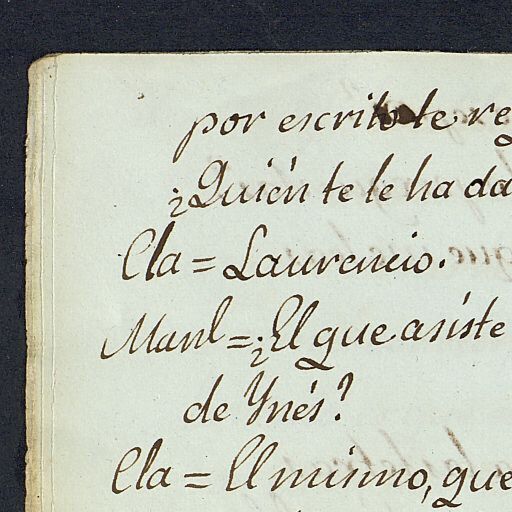 por escrito te re
¿Quién te le ha da
Cla = Laurencio.
Manl = ¿El que asiste
de Ynés?
Cla = El mismo, que